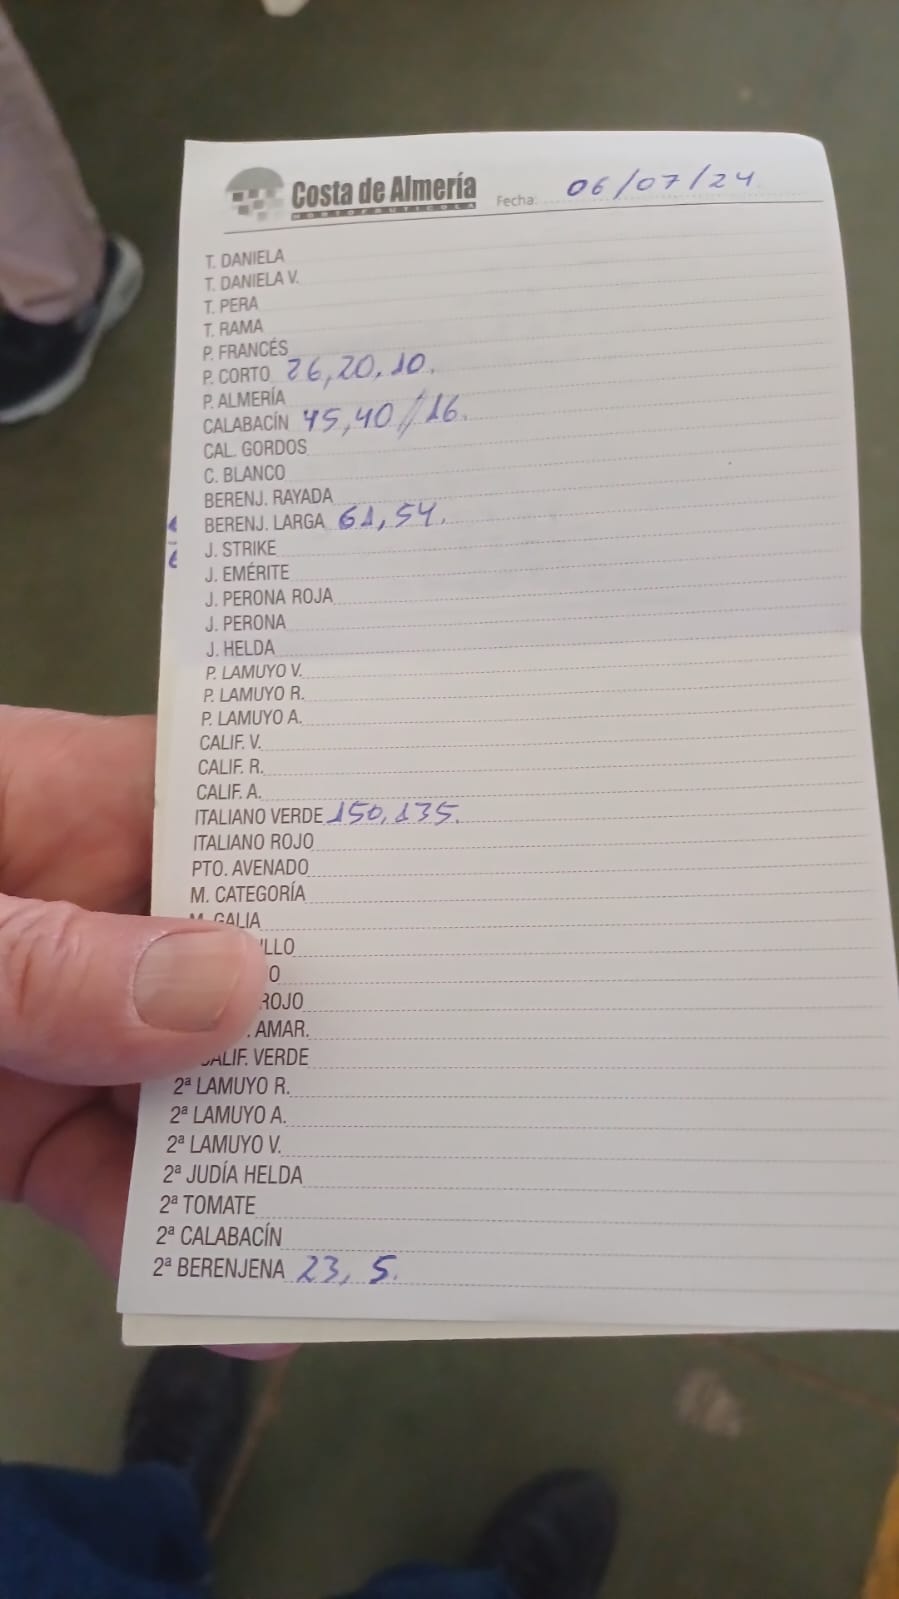 Costa de Almería
HORTOFRUTICOLA
Fecha: 06/07/24
T. DANIELA
T. DANIELA V.
T. PERA
T. RAMA
P. FRANCÉS
P. CORTO 26, 20, 10.
P. ALMERÍA
CALABACÍN 45, 40 // 16.
CAL. GORDOS
C. BLANCO
BERENJ. RAYADA
BERENJ. LARGA 61, 54.
J. STRIKE
J. EMÉRITE
J. PERONA ROJA
J. PERONA
J. HELDA
P. LAMUYO V.
P. LAMUYO R.
P. LAMUYO A.
CALIF. V.
CALIF. R.
CALIF. A.
ITALIANO VERDE 150, 135.
ITALIANO ROJO
PTO. AVENADO
M. CATEGORÍA
M. GALIA
ROJO
AMAR.
CALIF. VERDE
2ª LAMUYO R.
2ª LAMUYO A.
2ª LAMUYO V.
2ª JUDÍA HELDA
2ª TOMATE
2ª CALABACÍN
2ª BERENJENA 23, 5.